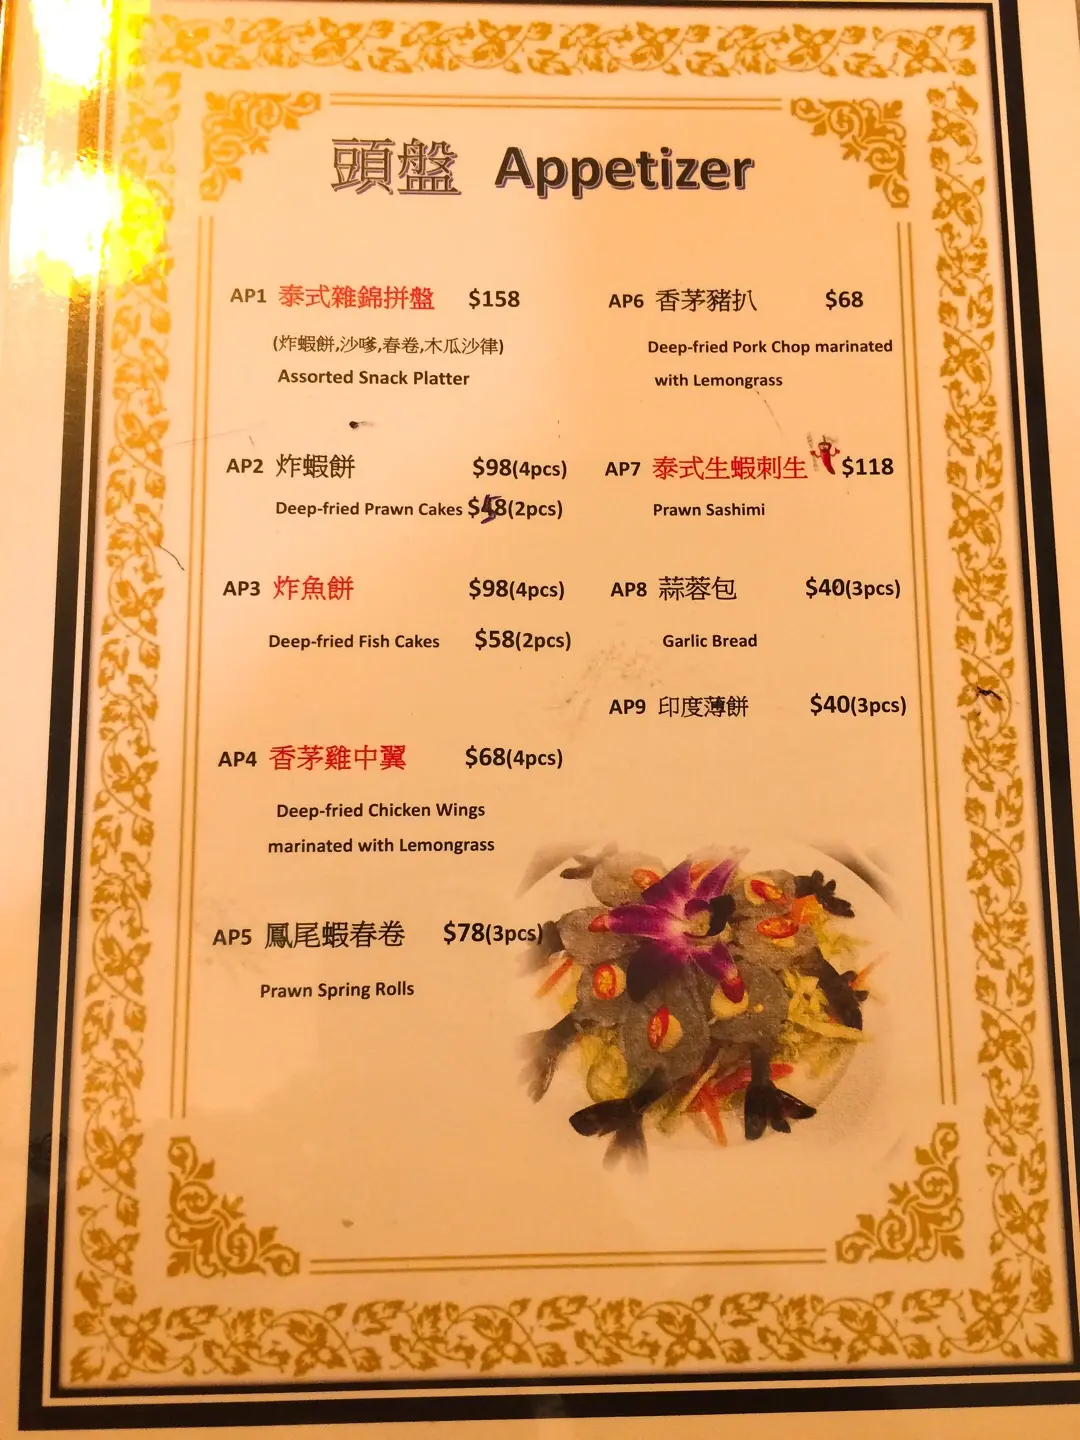 頭盤 Appetizer
AP1 泰式雜錦拼盤 $158
(炸蝦餅,沙嗲,春卷,木瓜沙律)
Assorted Snack Platter
AP2 炸蝦餅 $98(4pcs)
Deep-fried Prawn Cakes $58(2pcs)
AP3 炸魚餅 $98(4pcs)
Deep-fried Fish Cakes $58(2pcs)
AP4 香茅雞中翼 $68(4pcs)
Deep-fried Chicken Wings
marinated with Lemongrass
AP5 鳳尾蝦春卷 $78(3pcs)
Prawn Spring Rolls
AP6 香茅豬扒 $68
Deep-fried Pork Chop marinated
with Lemongrass
AP7 泰式生蝦刺生 $118
Prawn Sashimi
AP8 蒜蓉包 $40(3pcs)
Garlic Bread
AP9 印度薄餅 $40(3pcs)